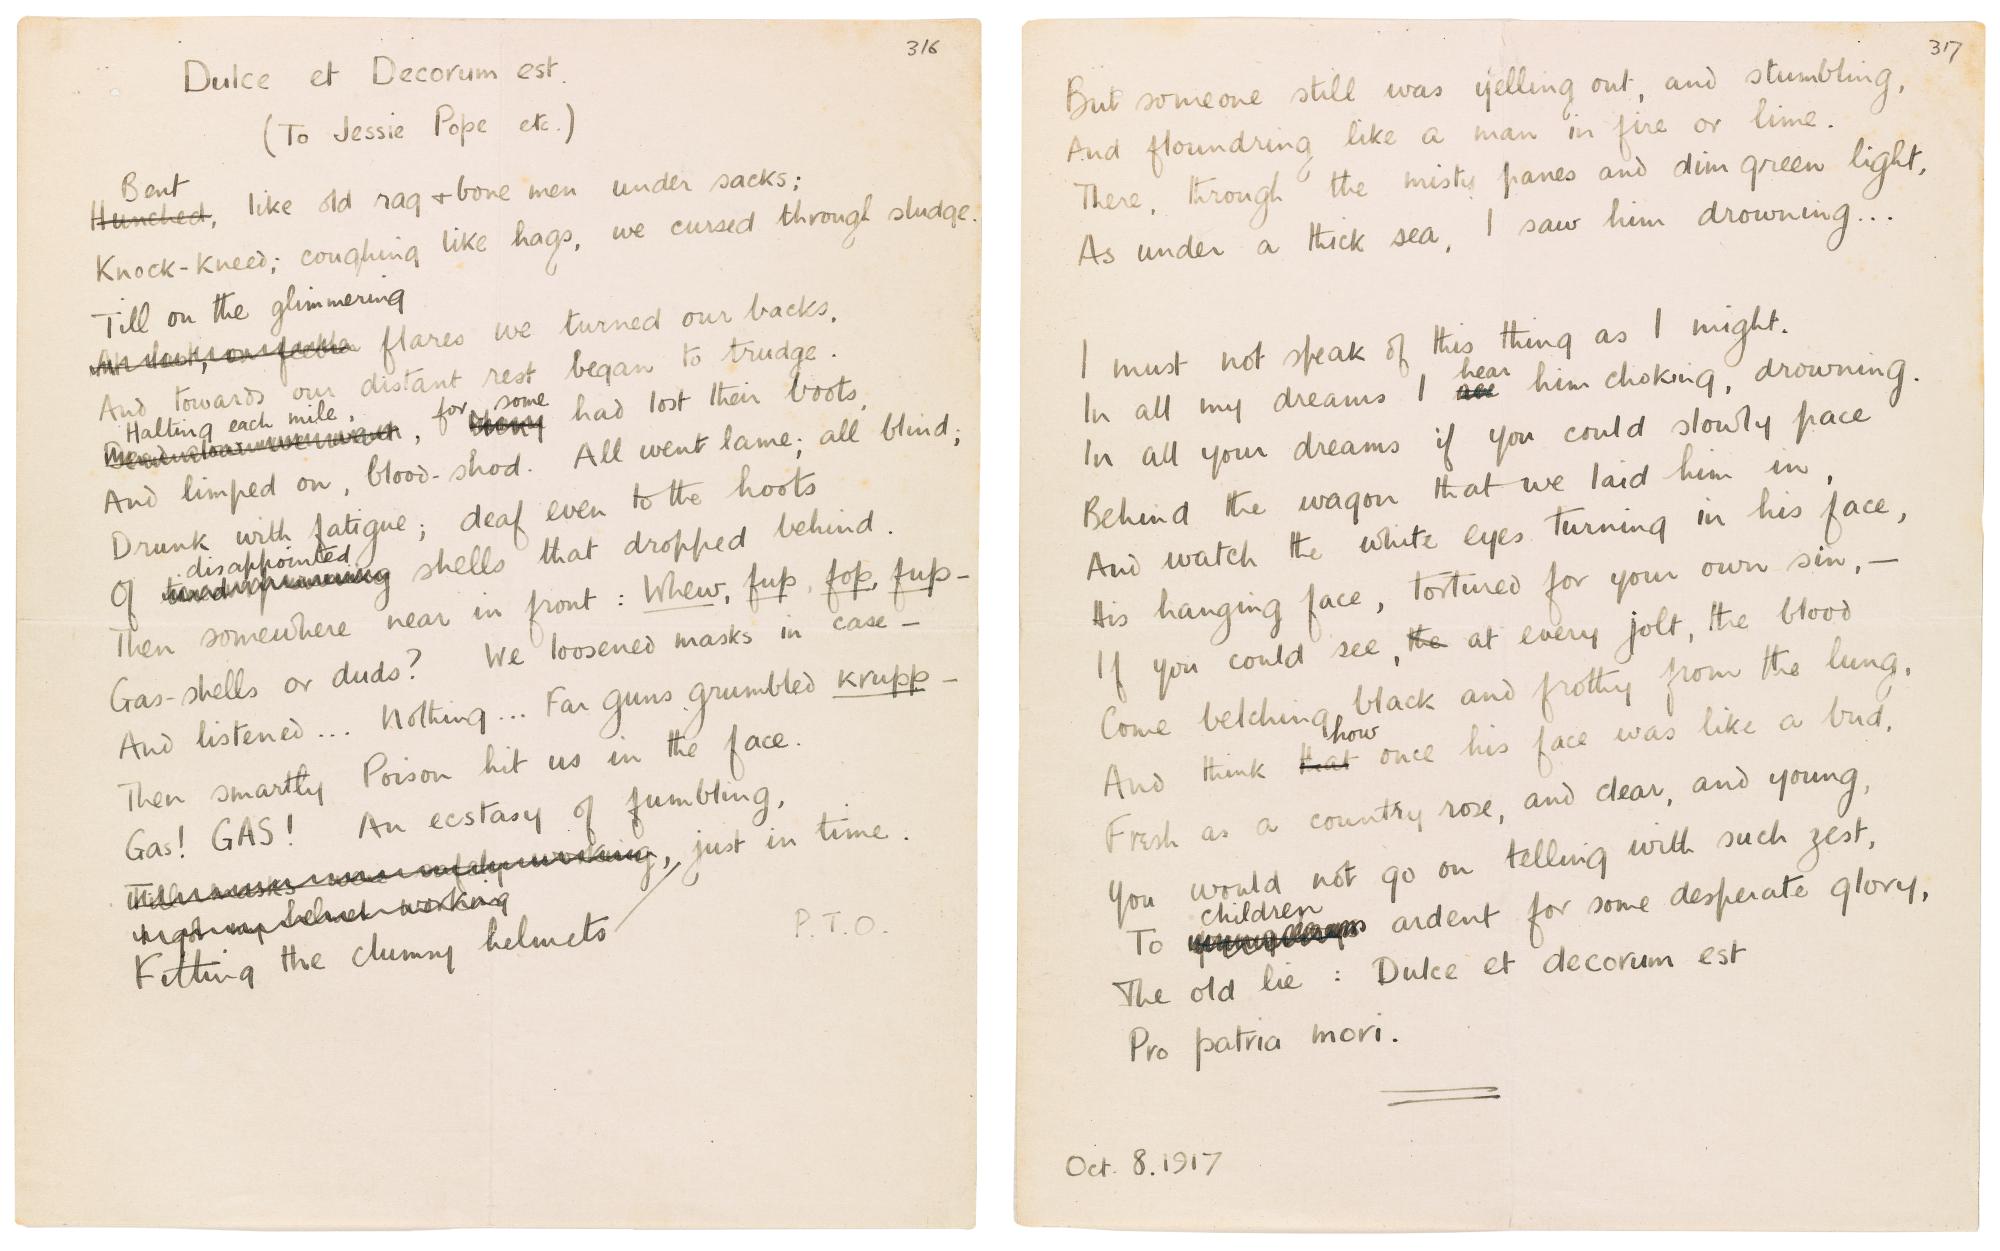 316
Dulce et Decorum est.
(To Jessie Pope etc.)
Bent
Hunched, like old rag + bone men under sacks;
Knock-kneed; coughing like hags, we cursed through sludge.
Till on the glimmering
flares we turned our backs,
And towards our distant rest began to trudge.
Halting each mile, some
, for Many had lost their boots,
And limped on, blood-shod. All went lame; all blind;
Drunk with fatigue; deaf even to the hoots
disappointed
Of shells that dropped behind.
Then somewhere near in front: Whew, fup, fop, fup—
Gas-shells or duds? We loosened masks in case—
And listened... Nothing... Far guns grumbled Krupp—
Then smartly Poison hit us in the face.
Gas! GAS! An ecstasy of fumbling,
, just in time.
helmet working
Fitting the clumsy helmets
P.T.O.
317
But someone still was yelling out, and stumbling,
And floundring like a man in fire or lime.
There, through the misty panes and dim green light,
As under a thick sea, I saw him drowning...
I must not speak of this thing as I might.
hear
In all my dreams I see him choking, drowning.
In all your dreams if you could slowly pace
Behind the wagon that we laid him in,
And watch the white eyes turning in his face,
His hanging face, tortured for your own sin,—
If you could see, the at every jolt, the blood
Come belching black and frothy from the lung,
how
And think that once his face was like a bud,
Fresh as a country rose, and clear, and young,
You would not go on telling with such zest,
children
To ardent for some desperate glory,
The old lie: Dulce et decorum est
Pro patria mori.
Oct. 8. 1917